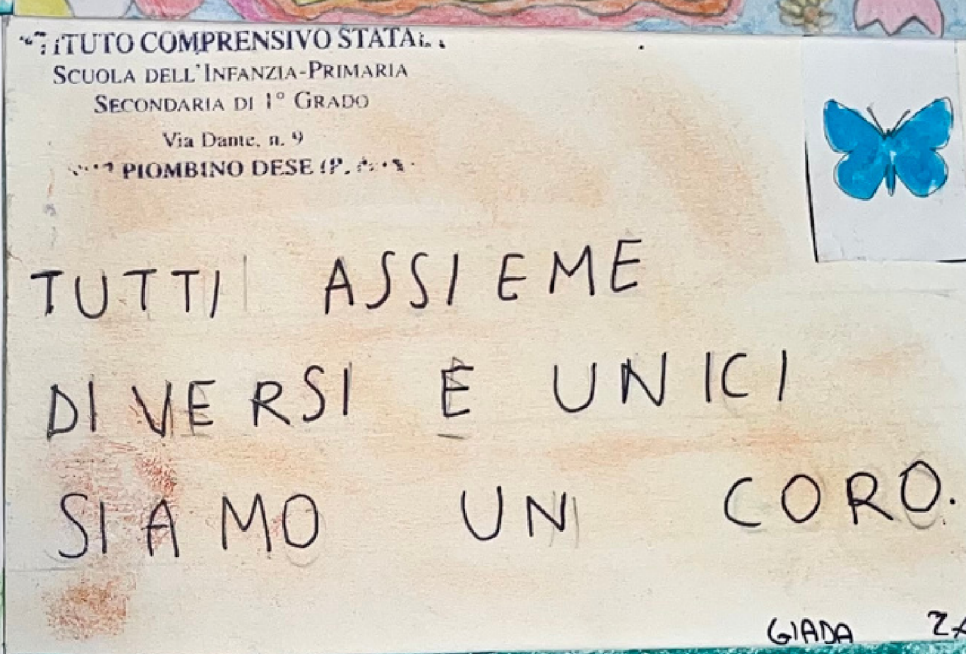 COMPRENSIVO
SCUOLA DELL'INFANZIA-PRIMARIA
SECONDARIA DI 1° GRADO
Via Dante, n. 9
PIOMBINO DESE
TUTTI ASSIEME
DIVERSI E UNICI
SIAMO UN CORO.
GIADA